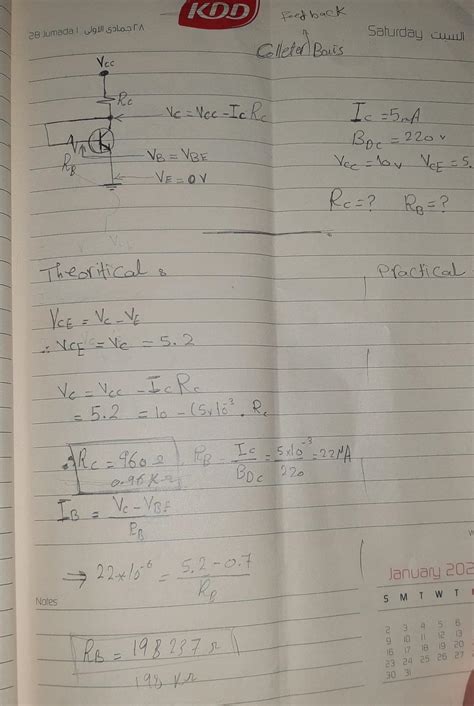 KDD
Feedback
28 Jumada I جمادى الأولى ٢٨
Saturday السبت
Colleter Bais
Vcc
Rc
Vc = Vcc - Ic Rc
RB
VB = VBE
VE = 0 V
Ic = 5mA
BDC = 220 v
Vcc = 10 v VCE = 5.
Rc = ? RB = ?
Theoritical :
Practical
VCE = Vc - VE
∴ VCE = Vc = 5.2
Vc = Vcc - Ic Rc
= 5.2 = 10 - (5x10⁻³ . Rc
∴ Rc = 960 Ω
0.96 KΩ
RB = Ic / BDC = 5x10⁻³ / 220 = 22 MA
IB = Vc - VBE / RB
⇒ 22x10⁻⁶ = 5.2 - 0.7 / RB
Notes
RB = 198 237 Ω
198 KΩ
January 202
S M T W T
2 3 4 5 6
9 10 11 12 13
16 17 18 19 20
23 24 25 26 27
30 31